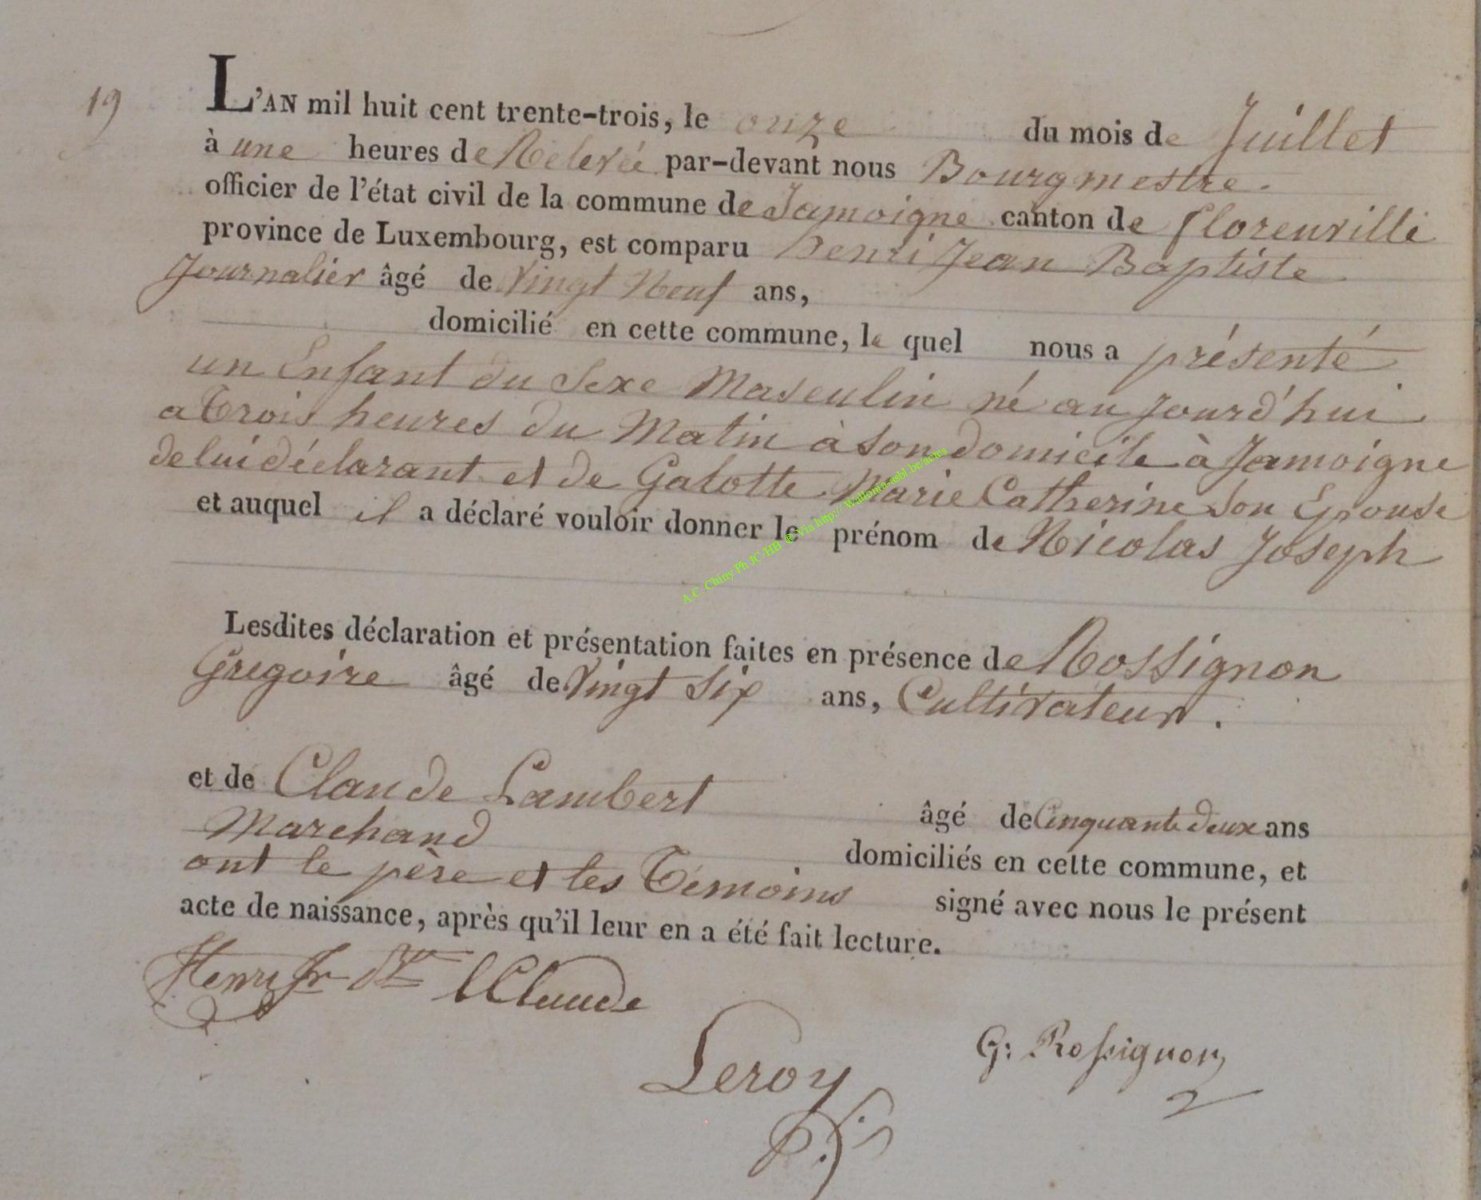 19
L'AN mil huit cent trente-trois, le onze du mois de Juillet
à une heures de Relevée par-devant nous Bourgmestre.
officier de l'état civil de la commune de Jamoigne canton de florenville
province de Luxembourg, est comparu henri Jean Baptiste
Journalier âgé de Vingt Neuf ans,
domicilié en cette commune, le quel nous a présenté
un Enfant du Sexe Masculin né au jourd'hui
a Trois heures du Matin à son domicile à Jamoigne
de lui déclarant et de Galotte Marie Catherine Son Epouse
et auquel il a déclaré vouloir donner le prénom de Nicolas Joseph
Lesdites déclaration et présentation faites en présence de Rossignon
Gregoire âgé de Vingt Six ans, Cultivateur.
et de Claude Lambert âgé de Cinquante deux ans
Marchand domiciliés en cette commune, et
ont le père et les Témoins signé avec nous le présent
acte de naissance, après qu'il leur en a été fait lecture.
Henri Jn Bte LClaude
Leroy
G: Rossignon